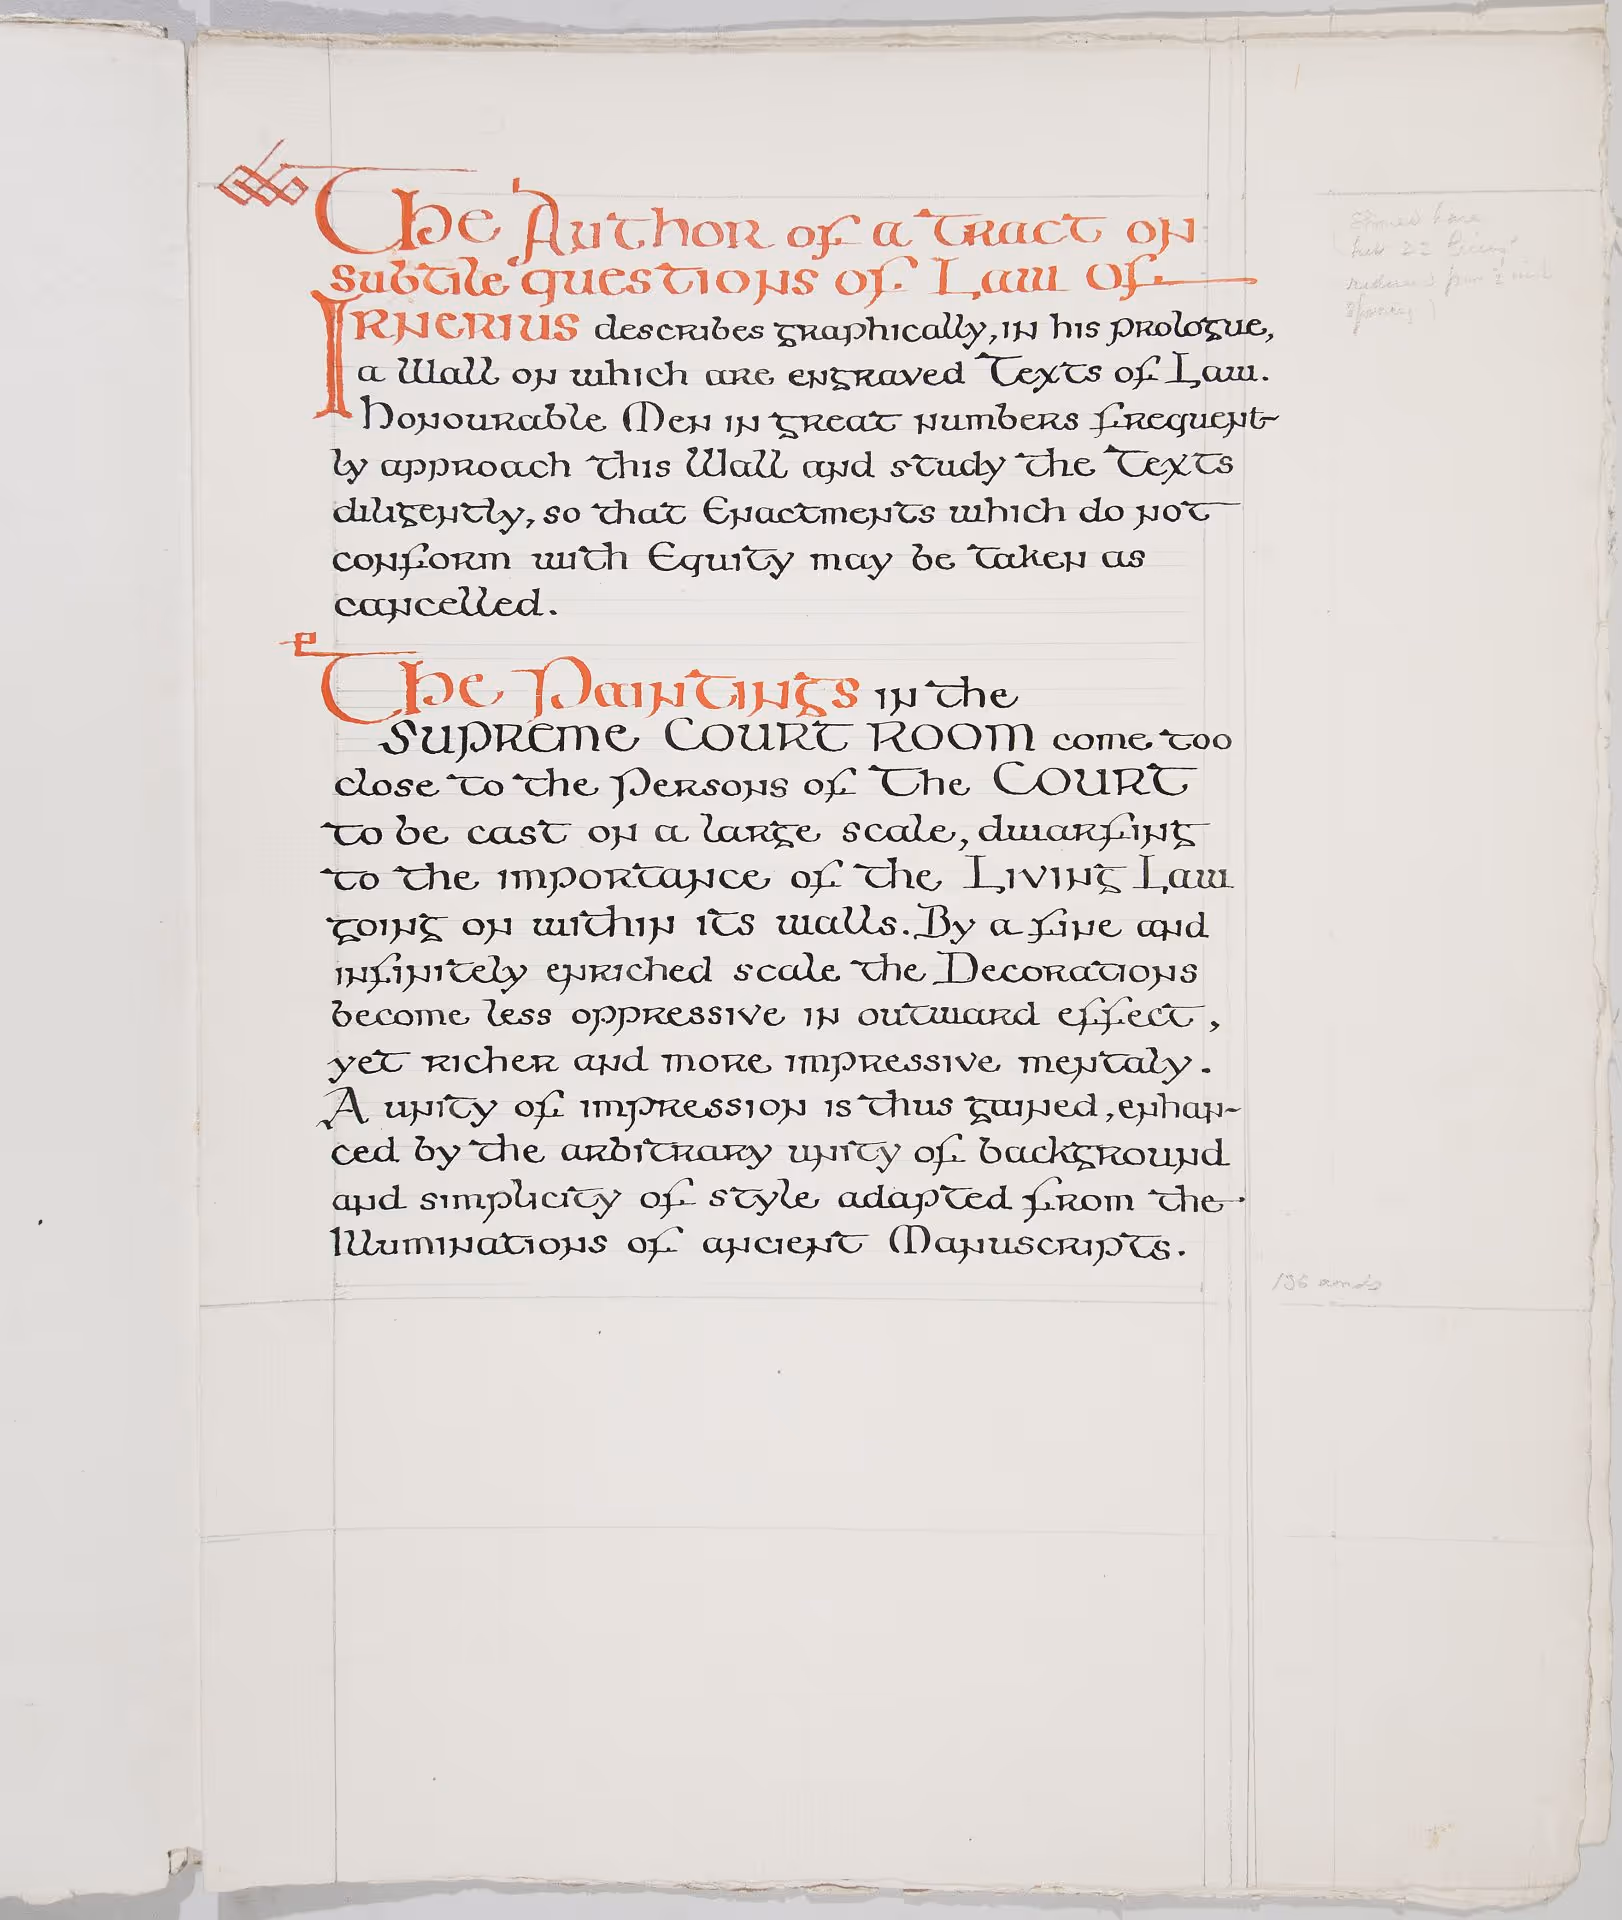 The Author of a Tract on
subtile questions of Law of
Irnerius describes graphically, in his prologue,
a Wall on which are engraved Texts of Law.
Honourable Men in great numbers frequent-
ly approach this Wall and study the Texts
diligently, so that Enactments which do not
conform with Equity may be taken as
cancelled.
The Paintings in the
SUPREME COURT ROOM come too
close to the Persons of The COURT
to be cast on a large scale, dwarfing
to the importance of the Living Law
going on within its walls. By a fine and
infinitely enriched scale the Decorations
become less oppressive in outward effect,
yet richer and more impressive mentaly.
A unity of impression is thus gained, enhan-
ced by the arbitrary unity of background
and simplicity of style adapted from the
Illuminations of ancient Manuscripts.